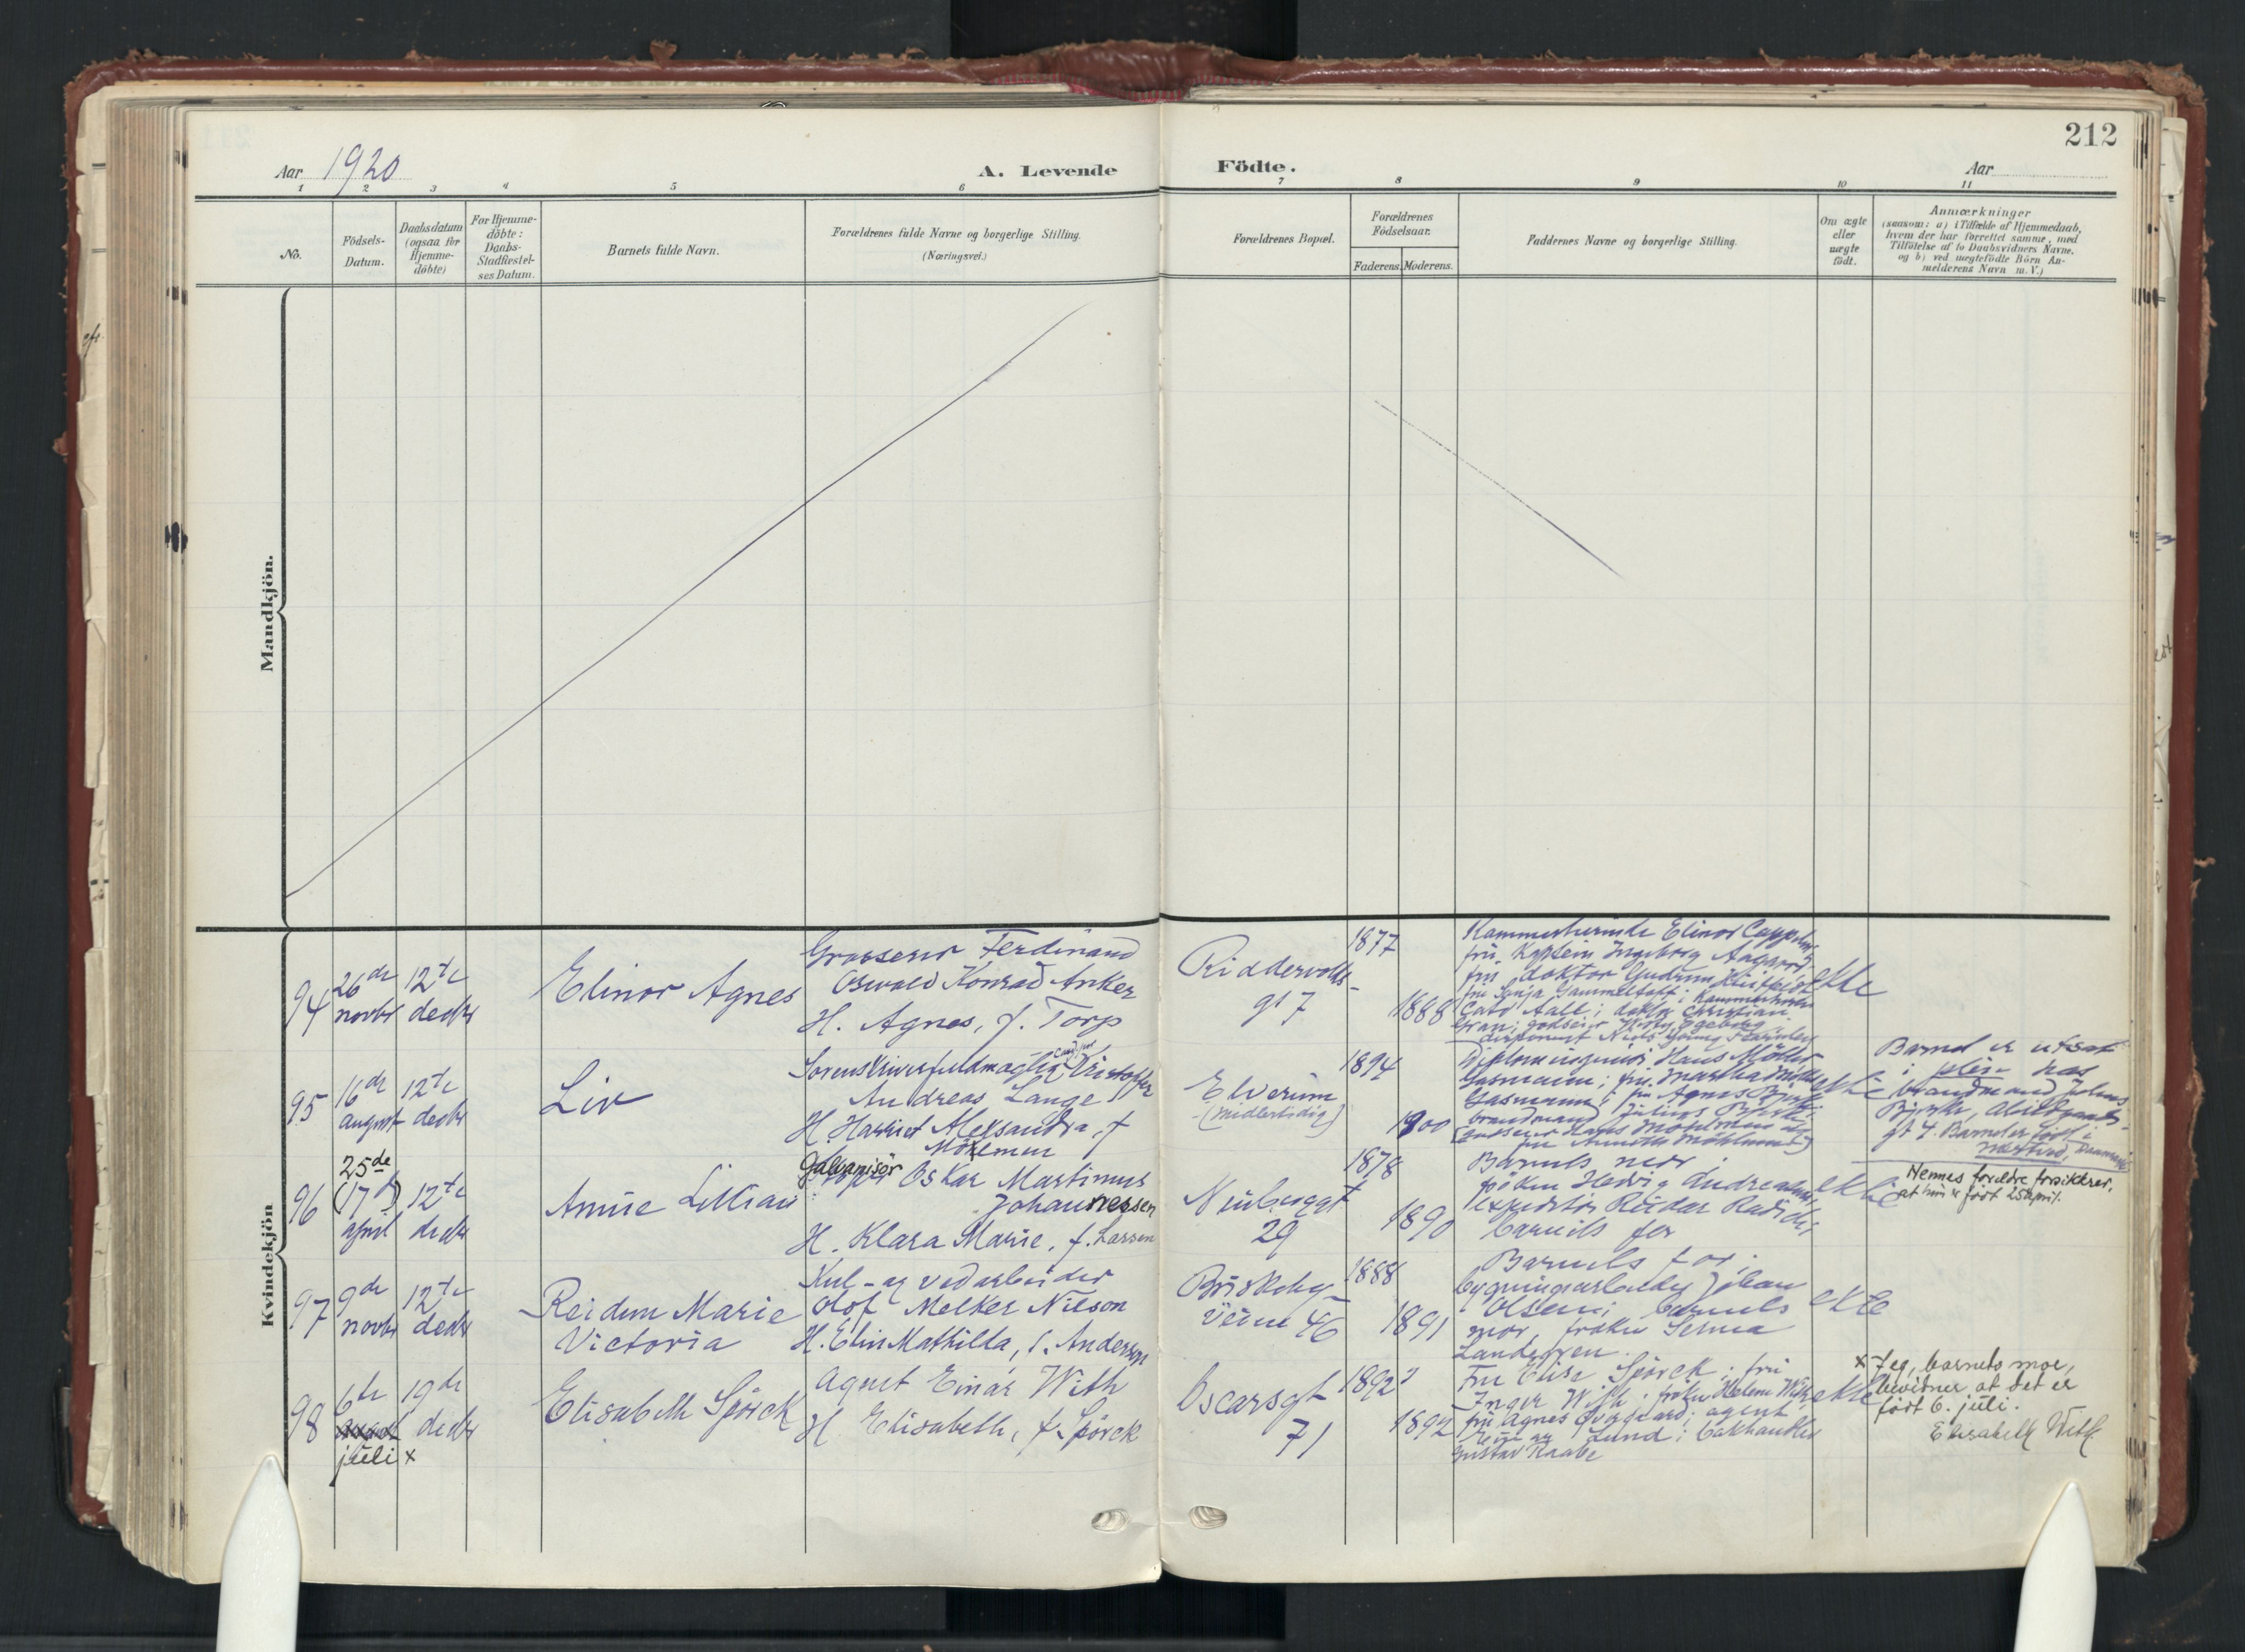 212
Aar 1920
A. Levende Födte.
Aar
1 2 3 4 5 6 7 8 9 10 11
No.
Födsels-
Datum.
Daabsdatum
(ogsaa for
Hjemme-
döbte)
For Hjemme-
döbte:
Daabs-
Stadfæstel-
ses Datum.
Barnets fulde Navn.
Forældrenes fulde Navne og borgerlige Stilling.
(Næringsvei.)
Forældrenes Bopæl.
Forældrenes
Födselsaar.
Faderens. Moderens.
Faddernes Navne og borgerlige Stilling.
Om ægte
eller
uægte
födt.
Anmærkninger
(saasom: a) i Tilfælde af Hjemmedaab,
hvem der har forrettet samme, med
Tilföielse af to Daabsvidners Navne,
og b) ved uægtefödte Börn An-
melderens Navn m. V.)
Mandkjön.
Kvindekjön
94
26de
novbr
12te
decbr
Elinor Agnes
Grosserer Ferdinand
Oswald Konrad Anker
H. Agnes, f. Torp
Riddervolds-
gt 7
1877
1888
Kammerherinde Elinor Cappelen
fru Kaptein Ingeborg Aagaard
fru doktor Gudrun
fru Sonja Gammeltoft; Kammerherre
Cato Aall; doktor Christian
Gran; godseier
disponent Niels Young Fearnley
ekte
95
16de
august
12te
decbr
Liv
Sorenskriverfuldmægtig Cand. jur. Kristoffer
Andreas Lange
H. Harriet Alexsandra, f.
Elverum
(midlertidig)
1894
1900
Diplomingeniør Hans Møller
Gasmann; fru Martha Møller
Gasmann; fru Agnes Bjerke
brandmand Julius Bjerke
ekte
Barnet er utsat
i pleie hos
brandmand Julius
Bjerke,
gt 4. Barnet er født i
Næstved, Danmark
96
25de
(17de)
april
12te
decbr
Annie Lillian
Galvanisör Oskar Martinus
Johannessen
H. Klara Marie, f. Larsen
Niubergt
29
1878
1890
Barnets mor;
frøken Hedvig Andreassen
expeditør Reidar
barnets far
ekte
Hennes foreldre forsikkrer,
at hun er født 25 april.
97
9de
novbr
12te
decbr
Reidun Marie
Victoria
Kul- og vedarbeider
Olof Melker Nilson
H. Elin Mathilda, f. Anderson
Briskeby-
veien 46
1888
1891
Barnets far;
bygningsarbeider Johan
Olsen; barnets
mor, frøken Selma
Landgren.
ekte
98
6te
august
juli x
19de
decbr
Elisabeth Spörck
Agent Einar With
H Elisabeth, f. Spörck
Oscarsgt
71
1892
1892
Fru Elise Spörck; fru
Inger With; frøken Helene With
fru Agnes Overgaard; agent
Lund; bokhandler
Gustav Raabe
ekte
x Jeg, barnets mor,
bevitner at det er
født 6. juli.
Elisabeth With